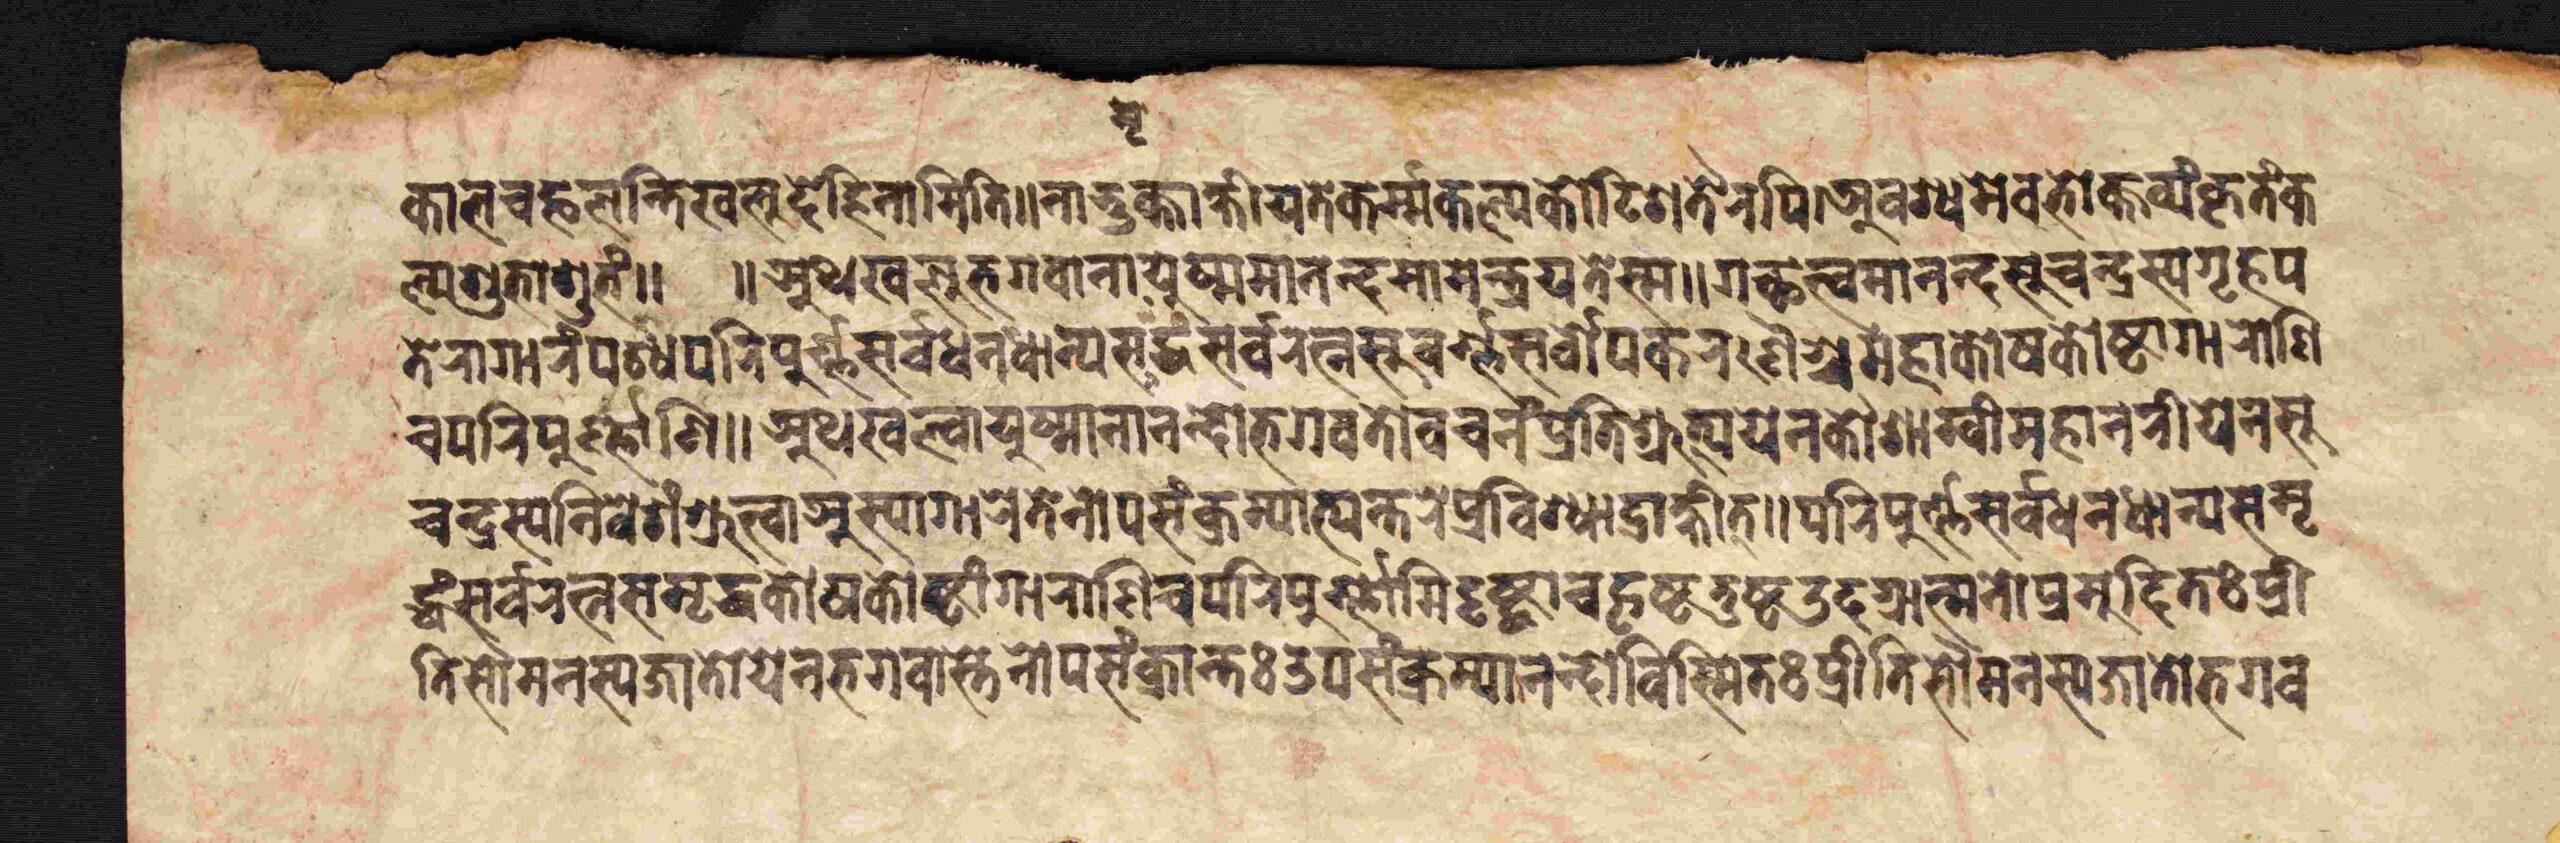 मृ
कालचफलन्तिखलुदेहिनामिति॥नाभुक्ताक्षीयतेकर्म्मकल्पकोटिशतैरपि।अवश्यमेवभोक्तव्यंकृतंक
ल्पशुभाशुभं॥ ॥अथखलुभगवानायुष्ममानन्दमामन्त्रयतेस्म॥गच्छत्वमानन्दसुचन्द्रस्यगृहप
तेरागारंपश्यपरिपूर्ण्णसर्वधनधान्यसद्धंसर्वरत्नसुवर्ण्णसर्वोपकरणैश्चमहाकोषकोष्टागाराणि
चपरिपूर्ण्णाणि॥अथखल्वायुष्मानानन्दोभगवतोवचनंप्रतिश्रुत्ययेनकौशाम्वीमहानगरीयेनसु
चन्द्रस्यनिवेशंश्रुत्वाअस्यागारेतेनोपसंक्रम्याभ्यन्तरेप्रविश्याद्राक्षीत्॥परिपूर्ण्णसर्वधनधान्यसमृ
द्धंसर्वरत्नसमृद्धकोषकोष्टांगाराणिचपरिपूर्ण्णामिदृष्ट्वाचहृष्टतुष्टउदग्रात्मनोप्रमुदितःप्री
तिसौमनस्यजातोयेनभगवांस्तेनोपसंक्रान्तःउपसंक्रम्यानन्दोविस्मितःप्रीतिसौमनस्यजातोभगव